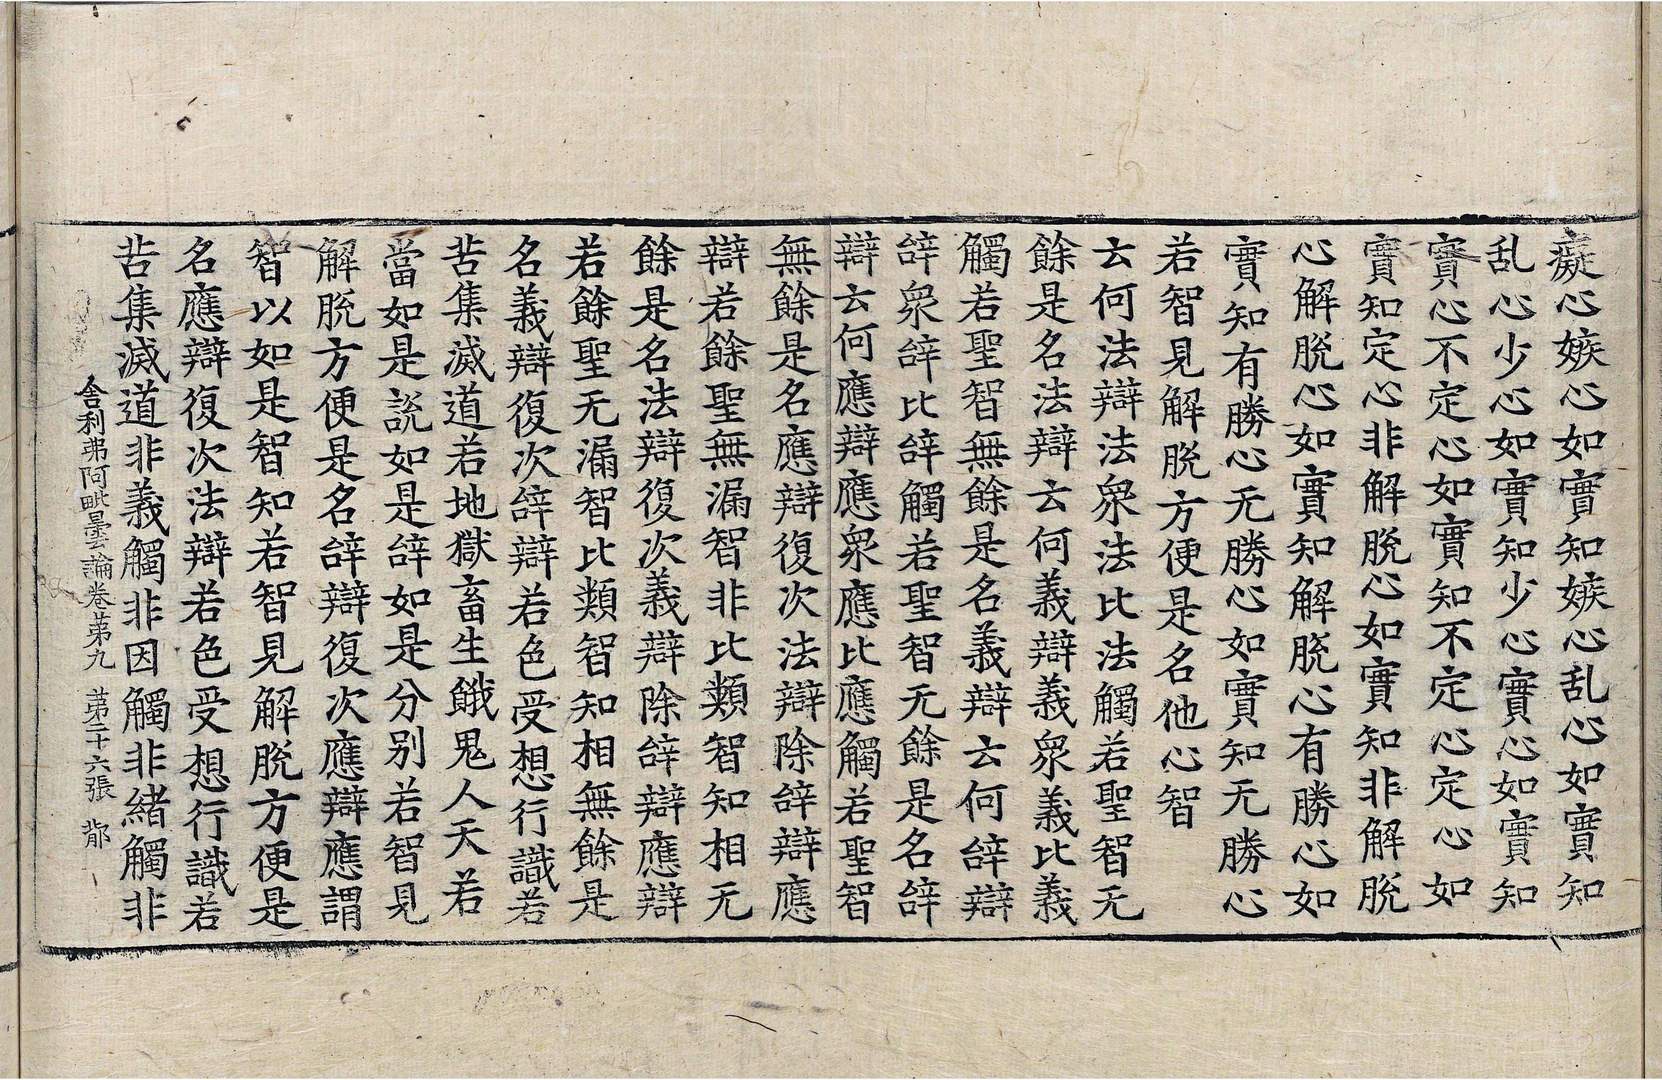 癡心嫉心如實知嫉心乱心如實知
乱心少心如實知少心實心如實知
實心不定心如實知不定心定心如
實知定心非解脫心如實知非解脫
心解脫心如實知解脫心有勝心如
實知有勝心无勝心如實知无勝心
若智見解脫方便是名他心智
云何法辯法衆法比法觸若聖智无
餘是名法辯云何義辯義衆義比義
觸若聖智無餘是名義辯云何辝辯
辝衆辝比辝觸若聖智无餘是名辝
辯云何應辯應衆應比應觸若聖智
無餘是名應辯復次法辯除辝辯應
辯若餘聖無漏智非比類智知相无
餘是名法辯復次義辯除辝辯應辯
若餘聖无漏智比類智知相無餘是
名義辯復次辝辯若色受想行識若
苦集滅道若地獄畜生餓鬼人天若
當如是說如是辝如是分別若智見
解脫方便是名辝辯復次應辯應謂
智以如是智知若智見解脫方便是
名應辯復次法辯若色受想行識若
苦集滅道非義觸非因觸非緒觸非
舍利弗阿毗曇論卷第九 第二十六張